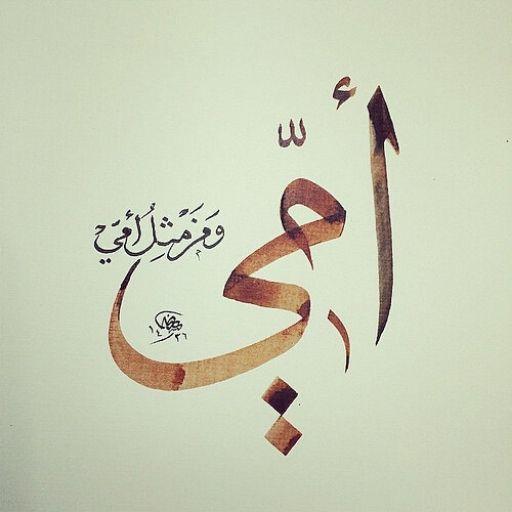 أمّي
وَمَنْ مِثْلُ أُمّيْ
١٤٣٦